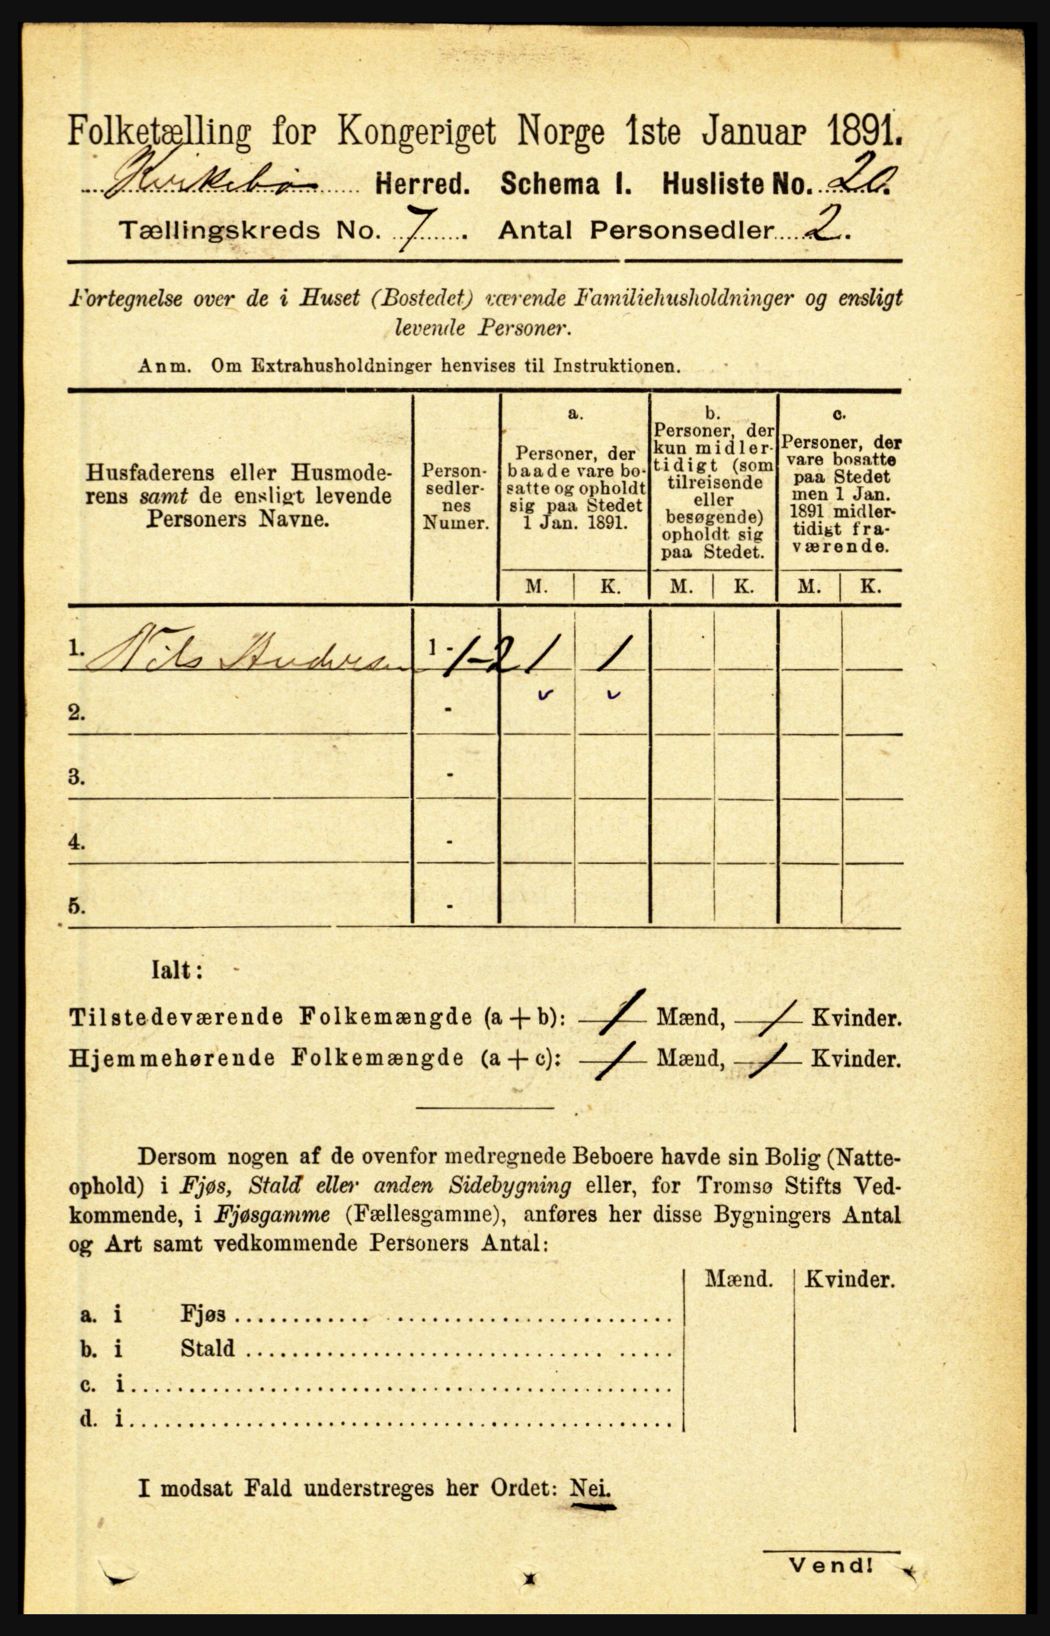 Folketælling for Kongeriget Norge 1ste Januar 1891.
Kvikebø Herred. Schema I. Husliste No. 20.
Tællingskreds No. 7. Antal Personsedler 2.
Fortegnelse over de i Huset (Bostedet) værende Familiehusholdninger og ensligt
levende Personer.
Anm. Om Extrahusholdninger henvises til Instruktionen.
Husfaderens eller Husmode-
rens samt de ensligt levende
Personers Navne.
Person-
sedler-
nes
Numer.
a.
Personer, der
baade vare bo-
satte og opholdt
sig paa Stedet
1 Jan. 1891.
b.
Personer, der
kun midler-
tidigt (som
tilreisende
eller
besøgende)
opholdt sig
paa Stedet.
c.
Personer, der
vare bosatte
paa Stedet
men 1 Jan.
1891 midler-
tidigt fra-
værende.
M. K. M. K. M. K.
1. Nils Andersen 1 - 1-2 1 1
2. -
3. -
4. -
5. -
Ialt:
Tilstedeværende Folkemængde (a + b): 1 Mænd, 1 Kvinder.
Hjemmehørende Folkemængde (a + c): 1 Mænd, 1 Kvinder.
Dersom nogen af de ovenfor medregnede Beboere havde sin Bolig (Natte-
ophold) i Fjøs, Stald eller anden Sidebygning eller, for Tromsø Stifts Ved-
kommende, i Fjøsgamme (Fællesgamme), anføres her disse Bygningers Antal
og Art samt vedkommende Personers Antal:
Mænd. Kvinder.
a. i Fjøs
b. i Stald
c. i
d. i
I modsat Fald understreges her Ordet: Nei.
Vend!